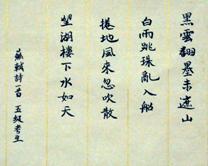 黑雲翻墨未遮山
白雨跳珠亂入船
捲地風來忽吹散
望湖樓下水如天
蘇軾詩一首 五級考生